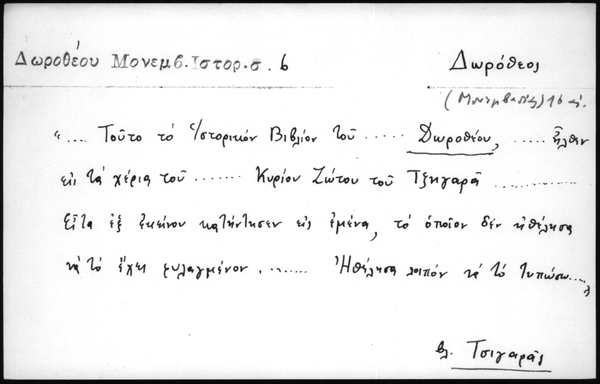 Δωροθέου Μονεμβ. Ιστορ. σ. 6
Δωρόθεος
(Μονεμβασίας) 16 αι.
".... Τοῦτο τὸ Ἱστορικὸν Βιβλίον τοῦ ..... Δωροθέου, ..... ἦλθεν
εἰς τὰ χέρια τοῦ ....... Κυρίου Ζώτου τοῦ Τζηγαρᾶ ............
Εἶτα ἐξ ἐκείνου κατήντησεν εἰς ἐμένα, τὸ ὁποῖον δὲν ἠθέλησα
νὰ τὸ ἔχω φυλαγμένον. ....... Ἠθέλησα λοιπὸν νὰ τὸ τυπώσω....,
βλ. Τσιγαρᾶς